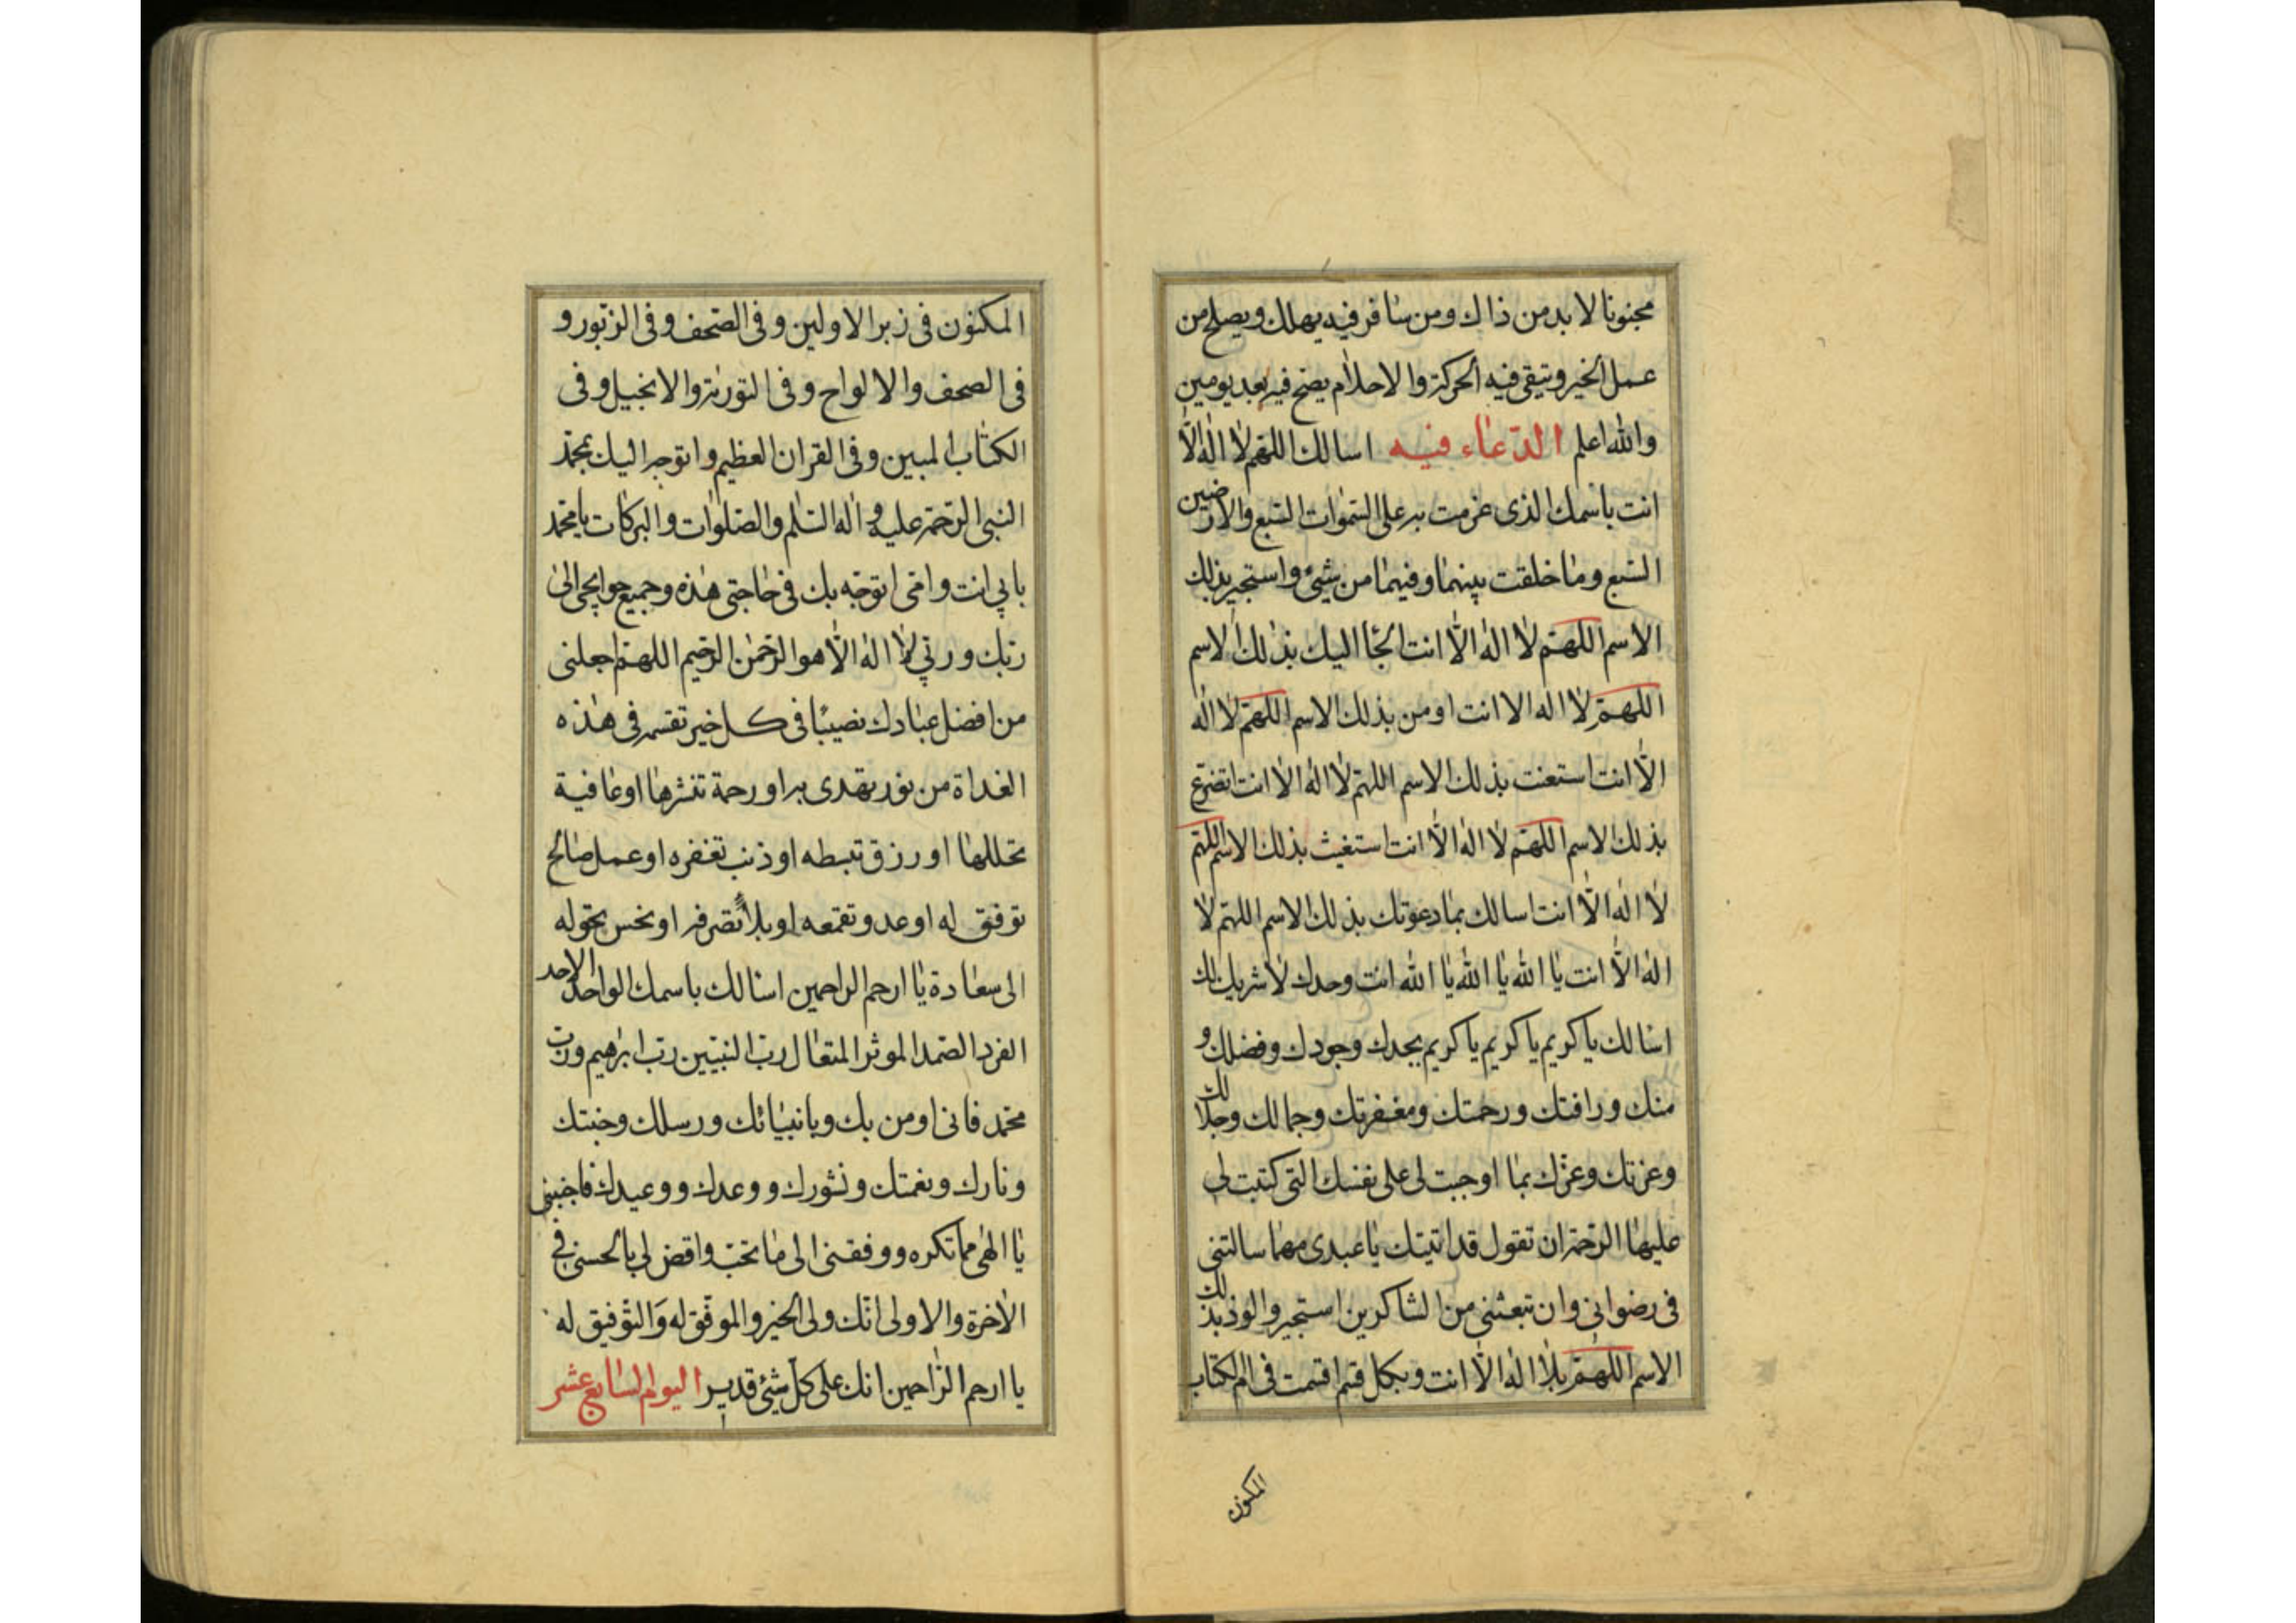 مجنونا لا بد من ذاك ومن سافر فيه يهلك ويصلح من
عمل الخير ويتقى فيه الحركة والاحلام يصح فيه بعد يومين
والله اعلم الدعاء فيه اسالك اللهم لا اله الا
انت باسمك الذى عزمت به على السموات السبع والارضين
السبع وما خلقت بينهما وفيهما من شىء واستجير بذلك
الاسم اللهم لا اله الا انت الجأ اليك بذلك الاسم
اللهم لا اله الا انت اومن بذلك الاسم اللهم لا اله
الا انت استعنت بذلك الاسم اللهم لا اله الا انت اتضرع
بذلك الاسم اللهم لا اله الا انت استغيث بذلك الاسم اللهم
لا اله الا انت اسالك بما دعوتك بذلك الاسم اللهم لا
اله الا انت يا الله يا الله يا الله انت وحدك لا شريك لك
اسالك يا كريم يا كريم يا كريم بجدك وجودك وفضلك و
منك ورافتك ورحمتك ومغفرتك وجمالك وجلالك
وعزتك وعزك بما اوجبت لى على نفسك التى كتبت لى
عليها الرحمة ان تقول قد اتيتك يا عبدى مهما سالتنى
فى رضوانى وان تبعثنى من الشاكرين استجير والوذ بذلك
الاسم اللهم بلا اله الا انت وبكل قسم اقسمت فى ام الكتاب
المكنون
المكنون فى زبر الاولين وفى الصحف وفى الزبور و
فى الصحف والالواح وفى التورية والانجيل وفى
الكتاب المبين وفى القران العظيم واتوجه اليك بمحمد
النبى الرحمة عليه و اله السلم والصلوات والبركات يا محمد
بابى انت وامى اتوجه بك فى حاجتى هذه وجميع حوايجى الى
ربك وربى لا اله الا هو الرحمن الرحيم اللهم اجعلنى
من افضل عبادك نصيبا فى كل خير تقسمه فى هذه
الغداة من نور تهدى به او رحمة تنشرها او عافية
تجللها او رزق تبسطه او ذنب تغفره او عمل صالح
توفق له او عدو تقمعه او بلاء تصرفه او نحس تحوله
الى سعادة يا ارحم الراحمين اسالك باسمك الواحد الاحد
الفرد الصمد الموثر المتعال رب النبيين رب ابرهيم ورب
محمد فانى اومن بك وبانبيائك ورسلك وجنتك
ونارك وبغمتك ونشورك ووعدك ووعيدك فاجنبنى
يا الهى مما تكره ووفقنى الى ما تحب واقض لى بالحسنى فى
الاخرة والاولى انك ولى الخير والموفق له والتوفيق له
يا ارحم الراحمين انك على كل شىء قدير اليوم السابع عشر